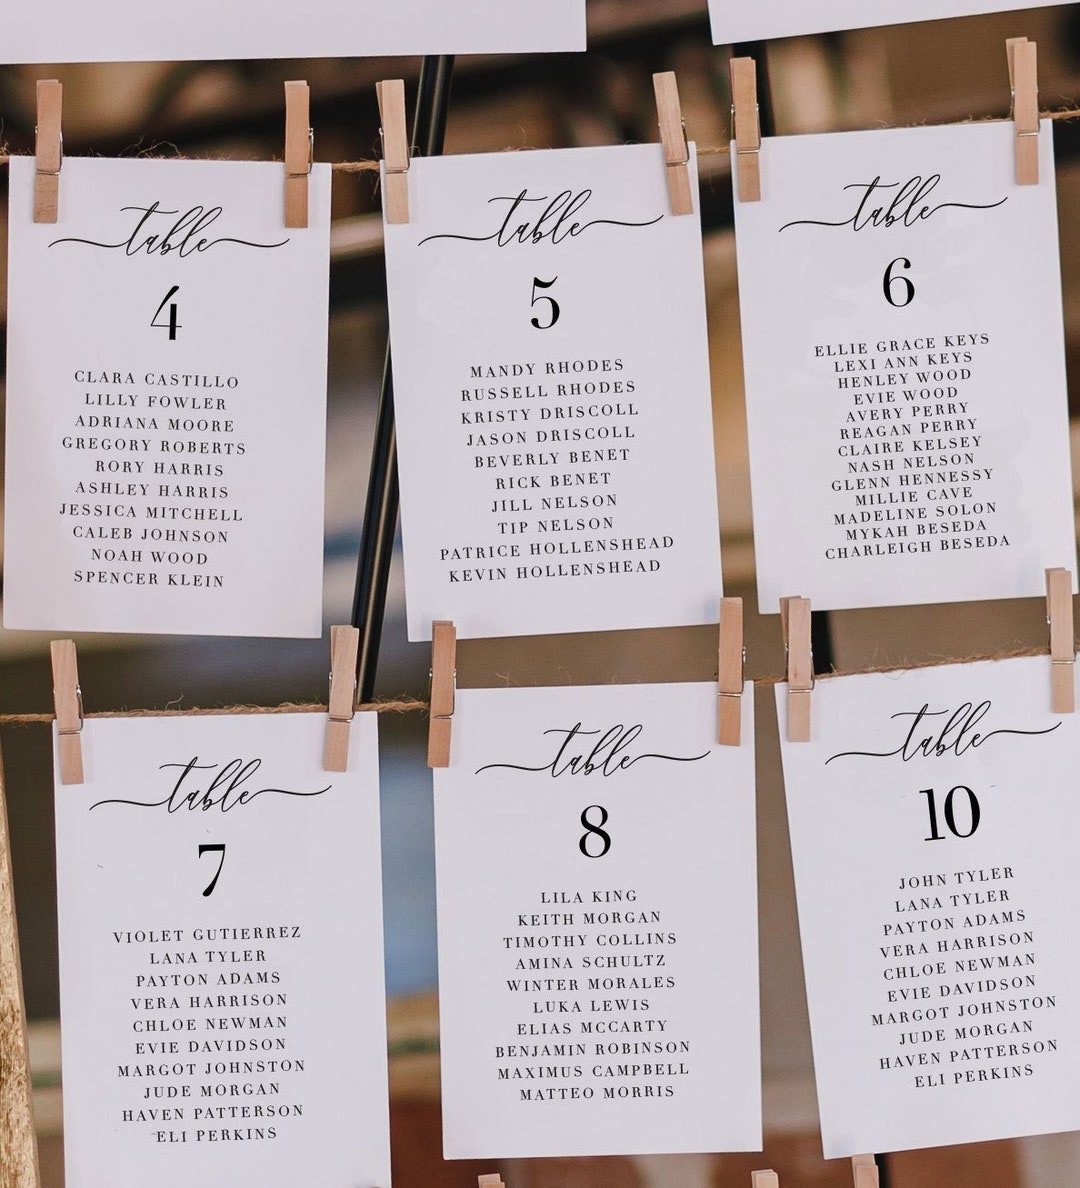 table
4
CLARA CASTILLO
LILLY FOWLER
ADRIANA MOORE
GREGORY ROBERTS
RORY HARRIS
ASHLEY HARRIS
JESSICA MITCHELL
CALEB JOHNSON
NOAH WOOD
SPENCER KLEIN
table
5
MANDY RHODES
RUSSELL RHODES
KRISTY DRISCOLL
JASON DRISCOLL
BEVERLY BENET
RICK BENET
JILL NELSON
TIP NELSON
PATRICE HOLLENSHEAD
KEVIN HOLLENSHEAD
table
6
ELLIE GRACE KEYS
LEXI ANN KEYS
HENLEY WOOD
EVIE WOOD
AVERY PERRY
REAGAN PERRY
CLAIRE KELSEY
NASH NELSON
GLENN HENNESSY
MILLIE CAVE
MADELINE SOLON
MYKAH BESEDA
CHARLEIGH BESEDA
table
7
VIOLET GUTIERREZ
LANA TYLER
PAYTON ADAMS
VERA HARRISON
CHLOE NEWMAN
EVIE DAVIDSON
MARGOT JOHNSTON
JUDE MORGAN
HAVEN PATTERSON
ELI PERKINS
table
8
LILA KING
KEITH MORGAN
TIMOTHY COLLINS
AMINA SCHULTZ
WINTER MORALES
LUKA LEWIS
ELIAS MCCARTY
BENJAMIN ROBINSON
MAXIMUS CAMPBELL
MATTEO MORRIS
table
10
JOHN TYLER
LANA TYLER
PAYTON ADAMS
VERA HARRISON
CHLOE NEWMAN
EVIE DAVIDSON
MARGOT JOHNSTON
JUDE MORGAN
HAVEN PATTERSON
ELI PERKINS